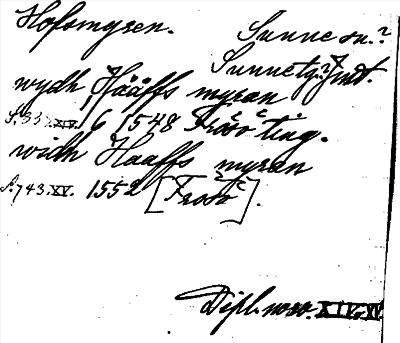 Hofsmyren. Sunne sn.?
Sunne tg.? Jmt.
wydh Hääffs myran
S. 337. XIV. / C 1548 Frösö ting.
widh Haaffs myran
S. 743. XV. 1552 [Frösö].
Dipl. norv. XIV. XV